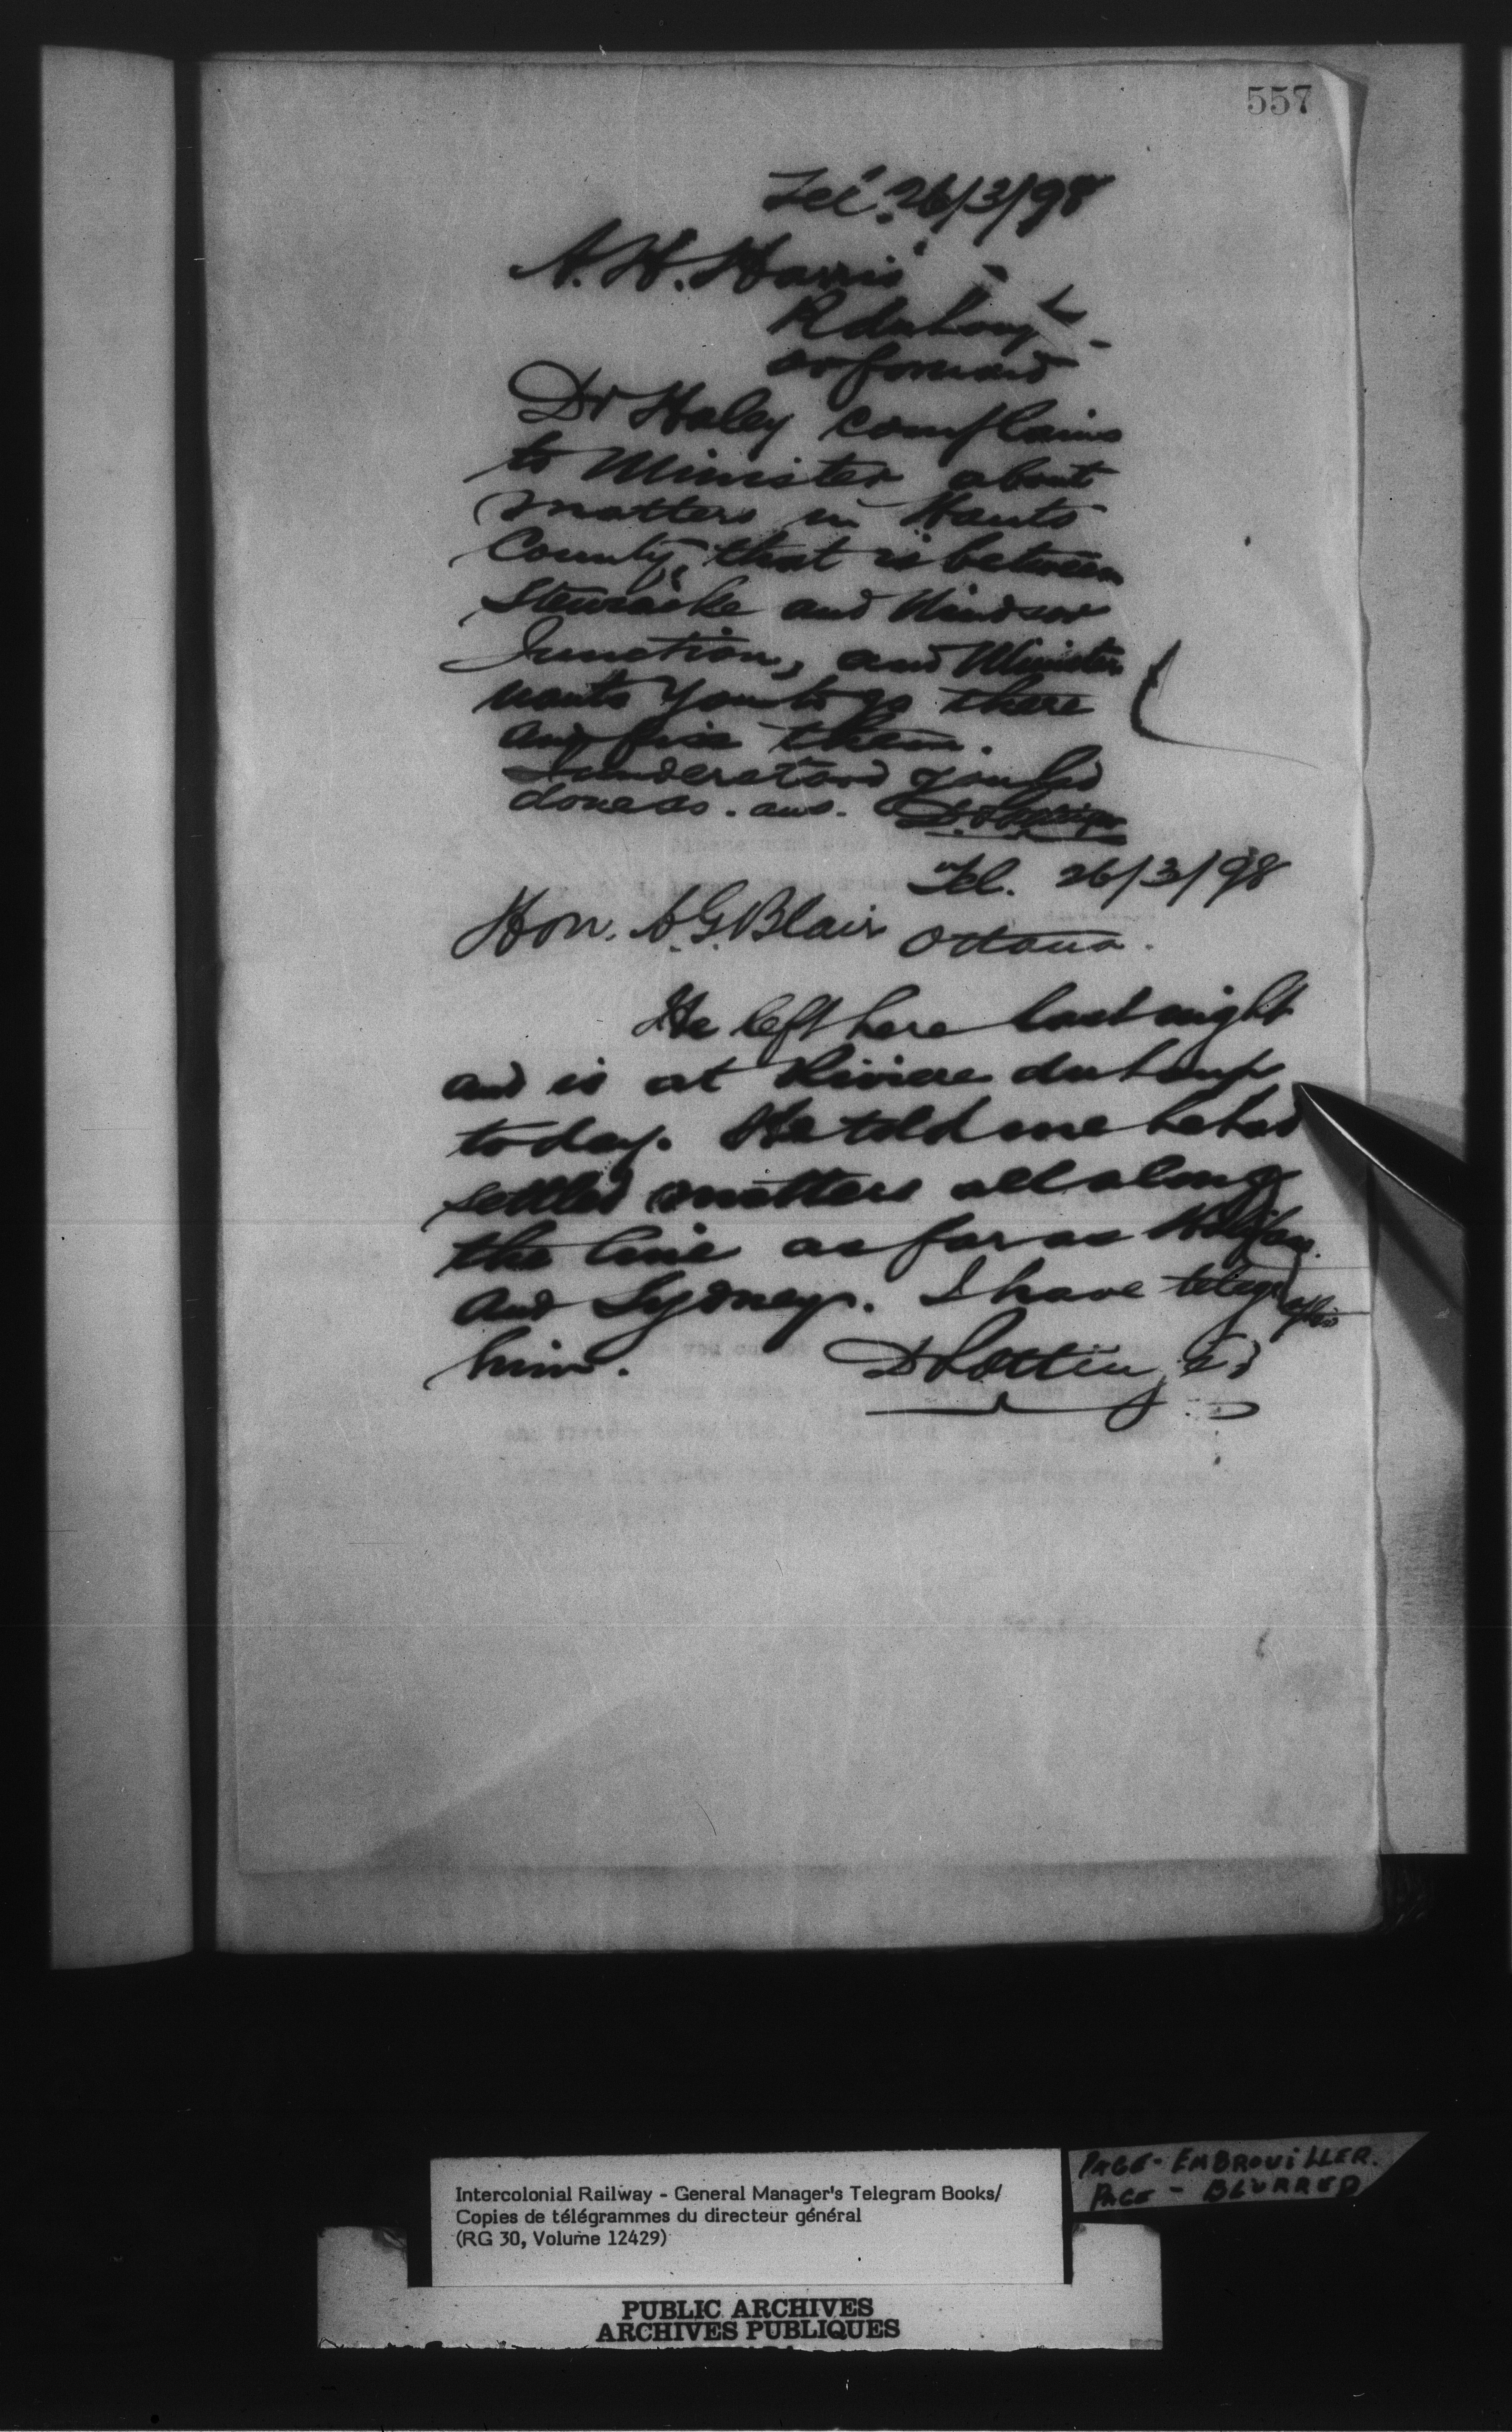 557
Tel. 26/3/98
A. H. Harris
R du Loup
or forward
Dr Haley complains
to Minister about
matters in Hants
County, that is between
Stewiacke and Windsor
Junction, and Minister
wants you to go there
and fix them.
I understood you had
done so. ans. D Pottinger
Tel. 26/3/98
Hon. A. G. Blair Ottawa.
He left here last night
and is at Riviere du Loup
to day. He told me he had
settled matters all along
the line as far as Halifax
and Sydney. I have telegraphed
him. D Pottinger
PAGE - EMBROUILLER.
PAGE - BLURRED
Intercolonial Railway - General Manager's Telegram Books/
Copies de télégrammes du directeur général
(RG 30, Volume 12429)
PUBLIC ARCHIVES
ARCHIVES PUBLIQUES